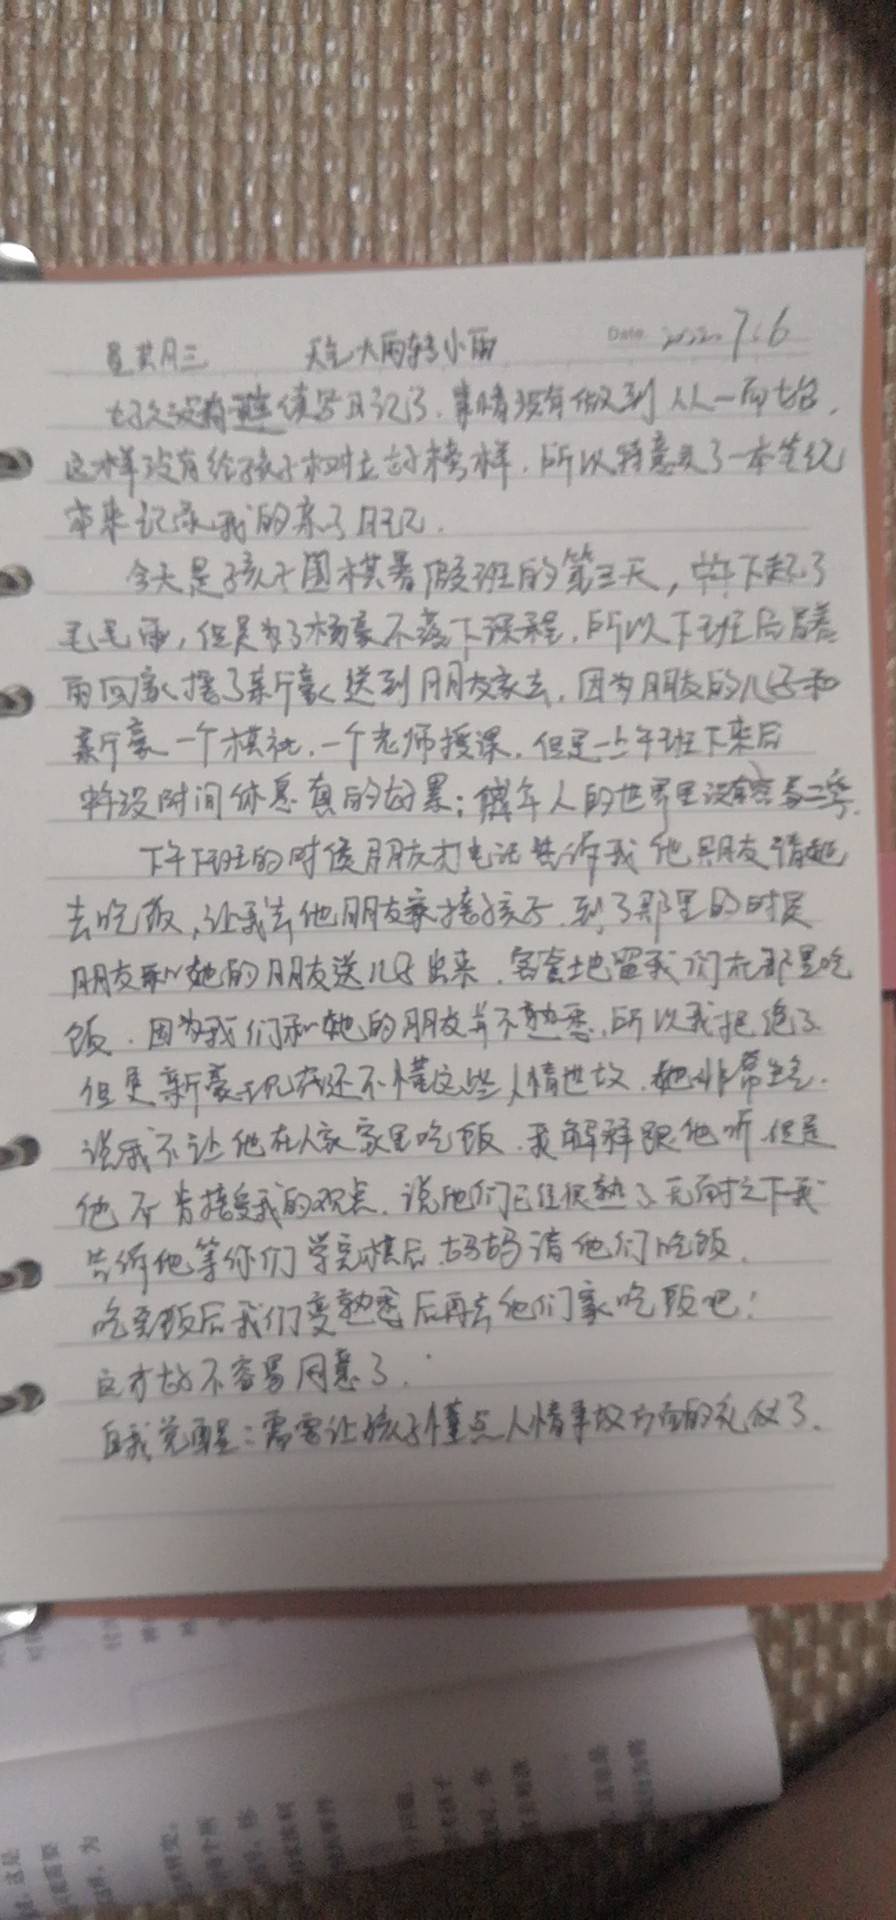 星期三 天气大雨转小雨 Date 2022.7.6
好久没有连续写日记了．事情没有做到从一而始，
这样没有给孩子树立好榜样．所以特意买了一本笔记
本来记录我的亲子日记．
今天是孩子围棋暑假班的第三天，中午下起了
毛毛雨，但是为了不落下课程．所以下班后冒着
雨回家接了新豪送到朋友家去．因为朋友的儿子和
新豪一个棋社．一个老师授课．但是一上午班下来后
中午没时间休息真的好累；年人的世界里没有容易二字．
下午下班的时候朋友打电话告诉我他朋友请她
去吃饭，让我去他朋友家接孩子．到了那里的时候
朋友和她的朋友送儿子出来．客套地留我们在那里吃
饭．因为我们和她的朋友并不熟悉．所以我拒绝了
但是新豪现在还不懂这些人情世故．她非常生气．
说我不让他在人家家里吃饭．我解释跟他听 但是
他不肯接受我的观点．说他们已经很熟了 无奈之下我
告诉他等你们学完棋后．妈妈请他们吃饭．
吃完饭后我们变熟悉后再去他们家吃饭吧！
这才好不容易同意了．
自我觉醒：需要让孩子懂点人情事故方面的礼仪了．